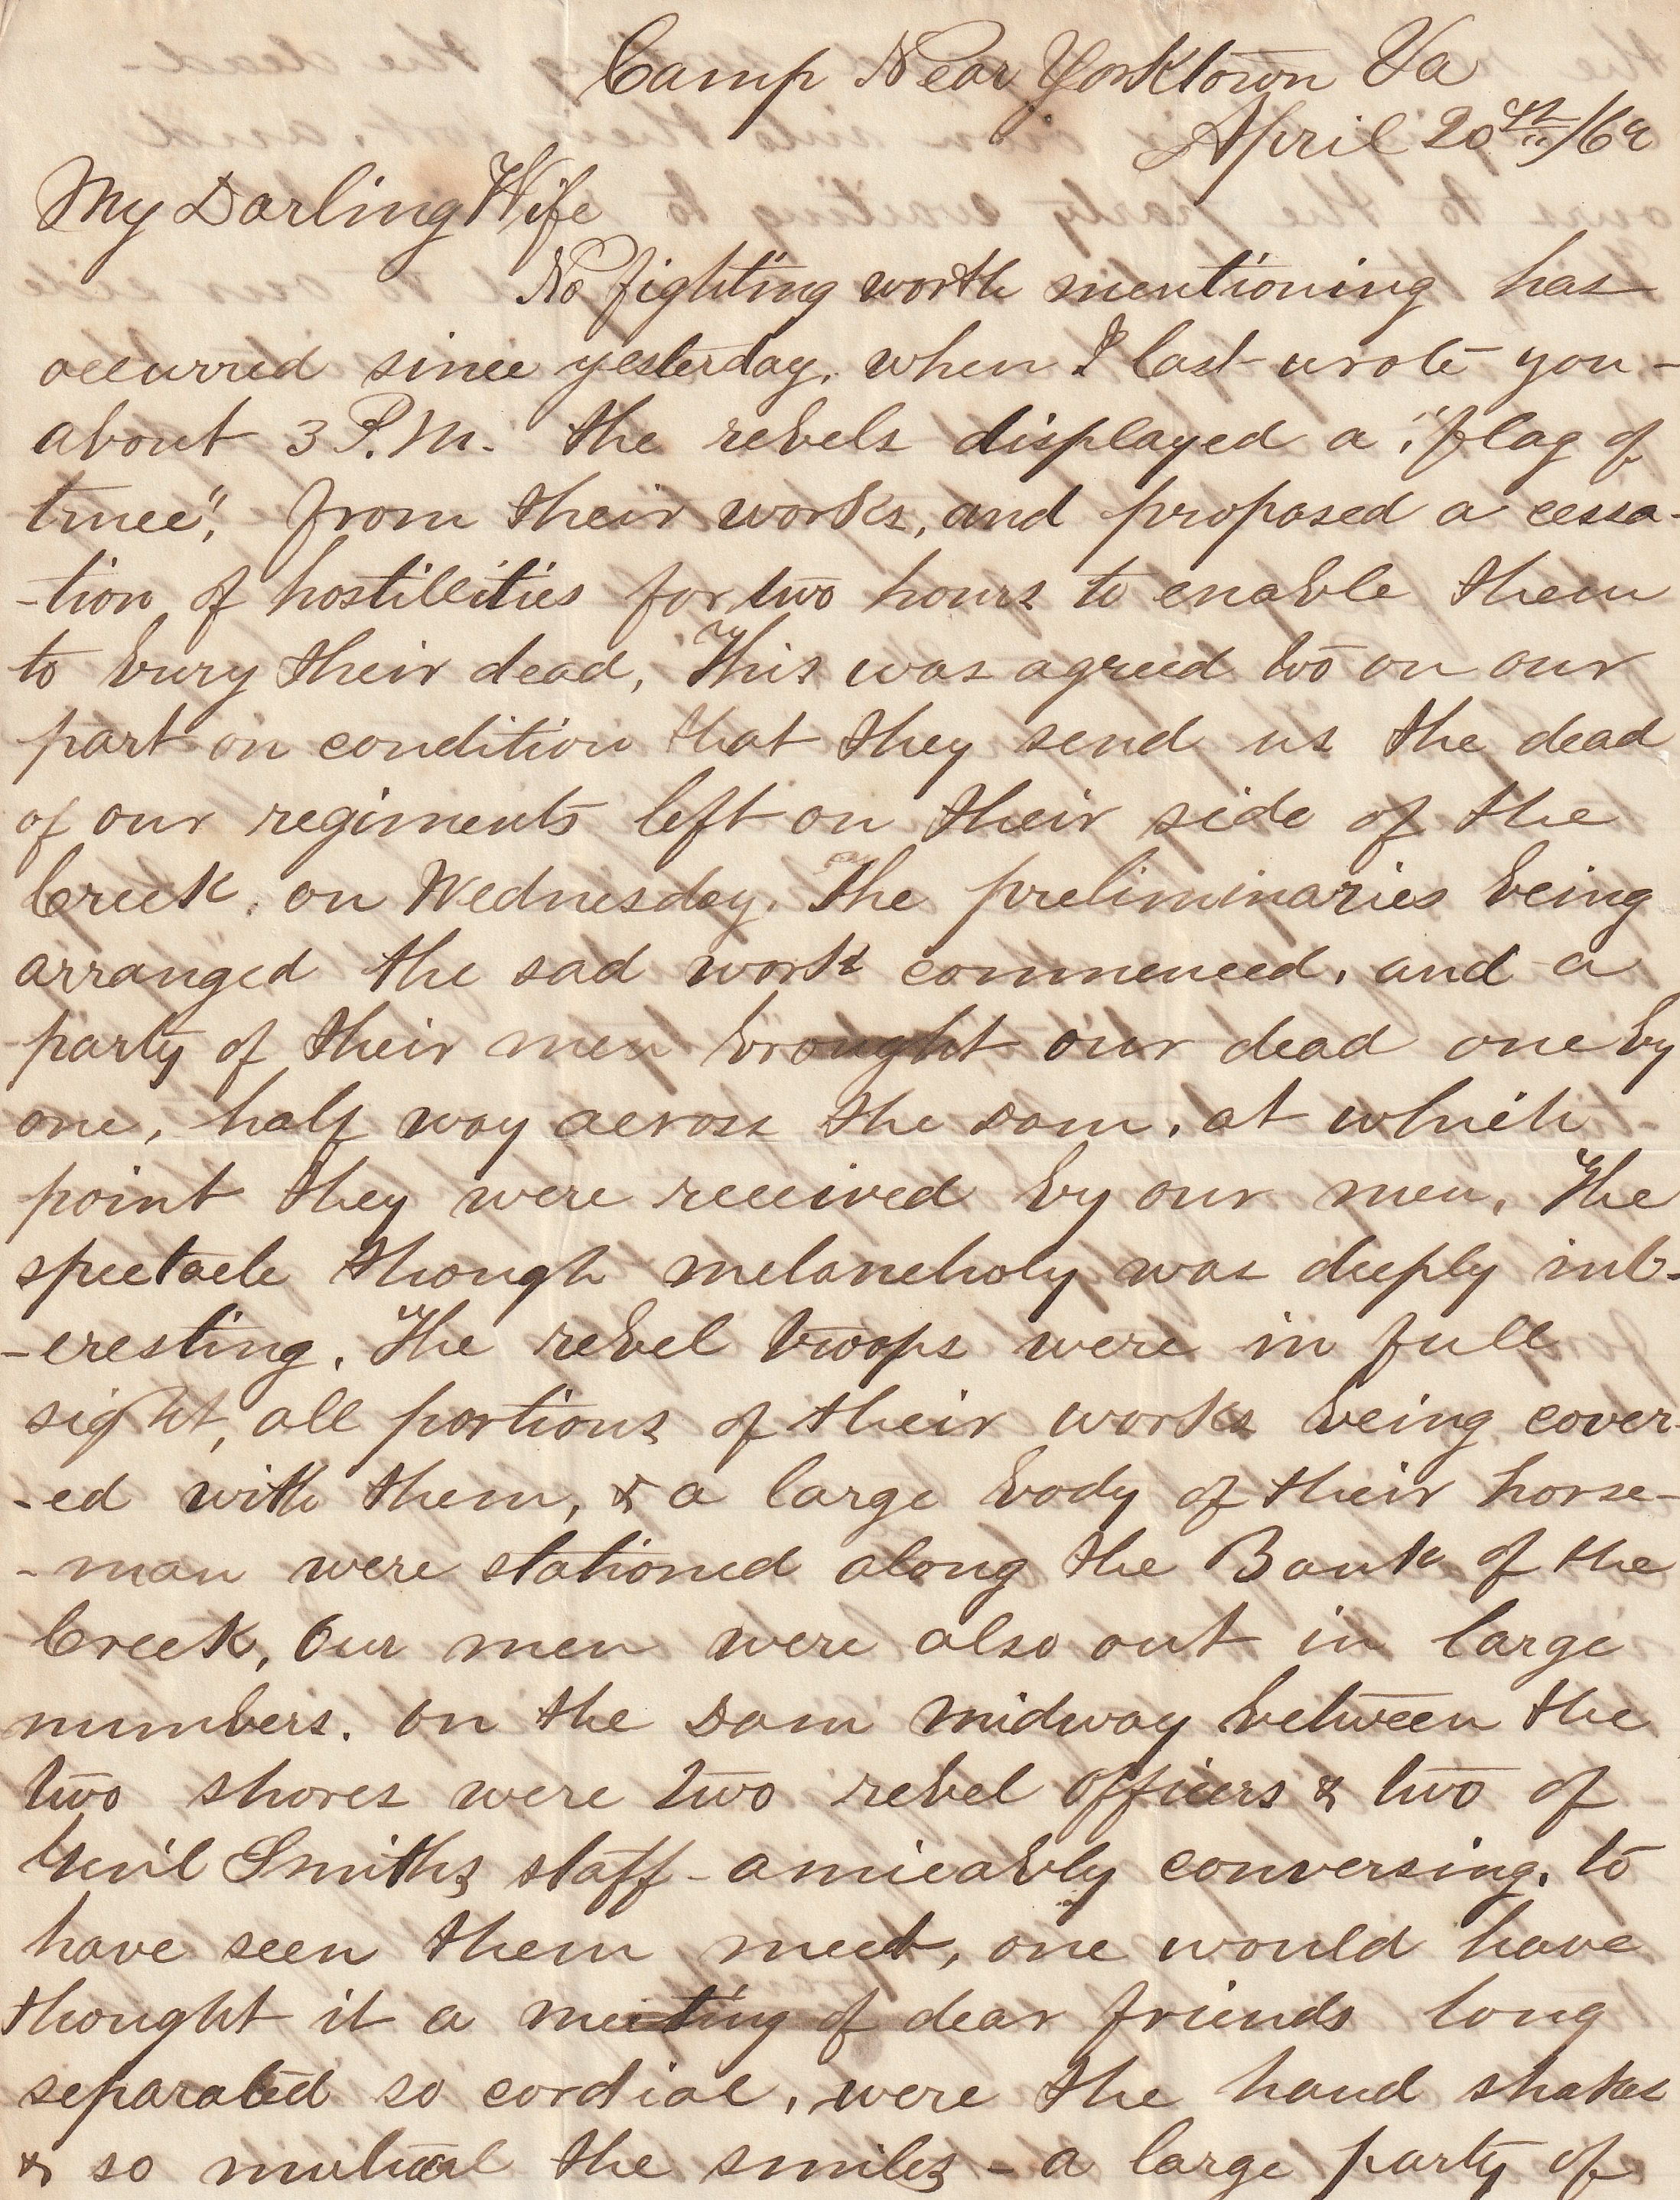 Camp Near Yorktown Va
April 20th/62
My Darling Wife
No fighting worth mentioning has
occurred since yesterday, when I last wrote you -
about 3 P.M. the rebels displayed a "flag of
truce", from their works, and proposed a cessa-
-tion of hostillities for two hours to enable them
to bury their dead, This was agreed two on our
part on condition that they send us the dead
of our regiments left on their side of the
Creek, on Wednesday. The preliminaries being
arranged the sad work commenced, and a
party of their men brought our dead one by
one, half way across the Dam, at which
point they were received by our men, The
spectacle though melancholy was deeply int-
-eresting. The rebel troops were in full
sight, all portions of their works being cover-
-ed with them, & a large body of their horse-
-man were stationed along the Bank of the
Creek, Our men were also out in large
numbers. on the Dam midway between the
two shores were two rebel officers & two of
Genl Smiths staff - amicably conversing, to
have seen them meet, one would have
thought it a meeting of dear friends long
separated so cordial, were the hand shakes
& so mutual the smiles - a large party of